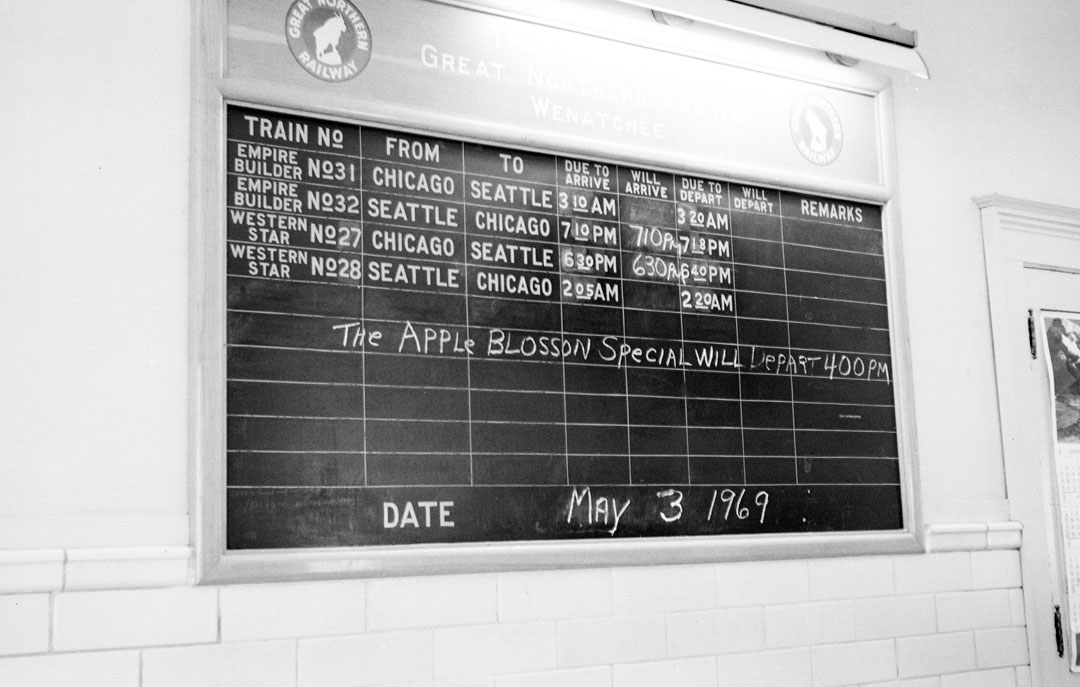 GREAT NORTHERN RAILWAY
TRAIN
GREAT NORTHERN RAILWAY
WENATCHEE
TRAIN NO FROM TO DUE TO ARRIVE WILL ARRIVE DUE TO DEPART WILL DEPART REMARKS
EMPIRE BUILDER NO31 CHICAGO SEATTLE 3 10 AM 3 20 AM
EMPIRE BUILDER NO32 SEATTLE CHICAGO 7 10 PM 710PM 7 18 PM
WESTERN STAR NO27 CHICAGO SEATTLE 6 30 PM 630PM 6 40 PM
WESTERN STAR NO28 SEATTLE CHICAGO 2 05 AM 2 20 AM
THe APPLe BLOSSON SpeciAL WILL DePART 400 PM
DATE MAY 3 1969